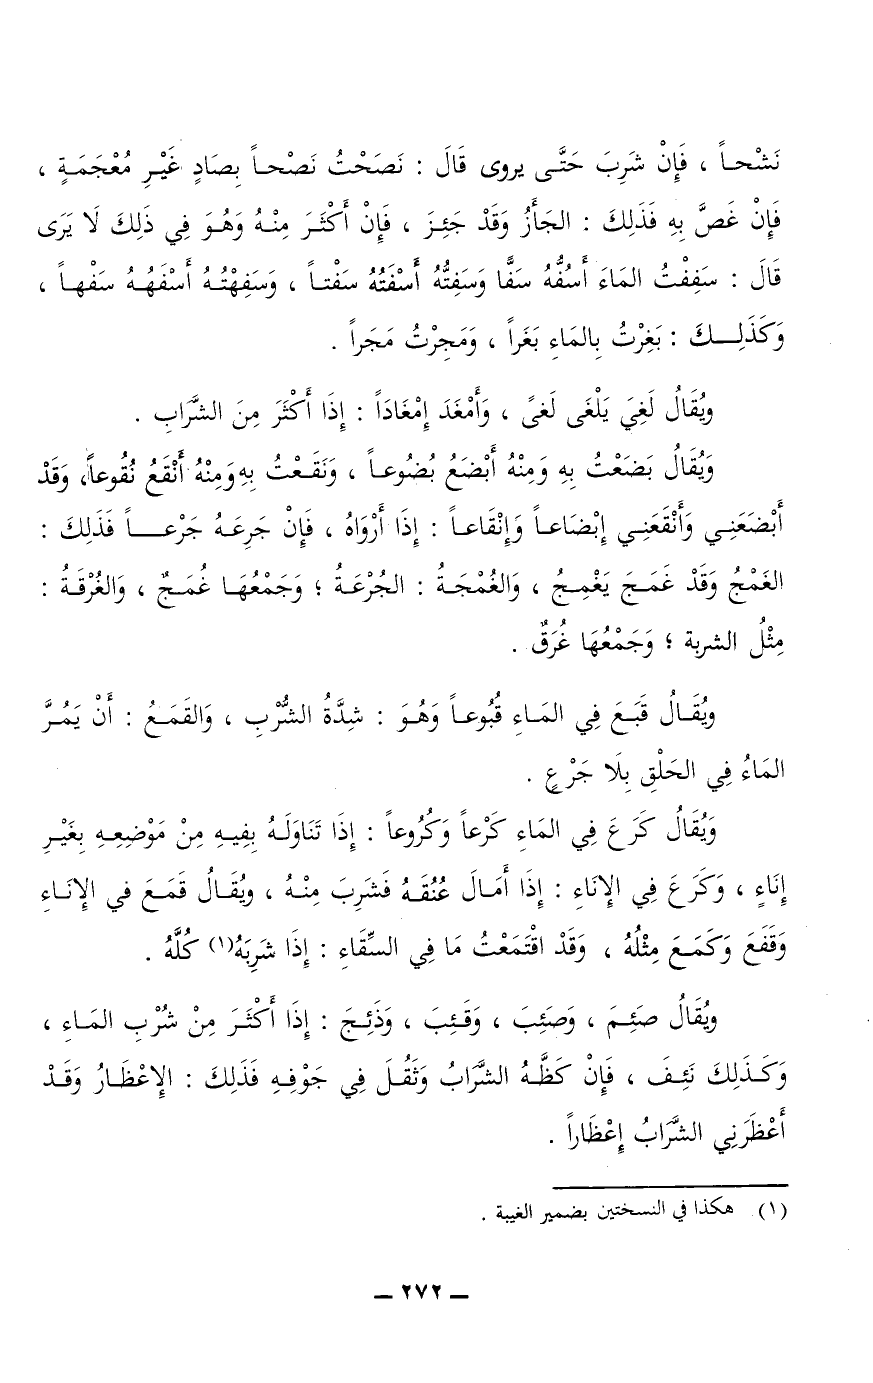 نَشْحاً ، فَإِنْ شَرِبَ حَتَّى يروى قَالَ : نَصَحْتُ نَصْحاً بِصَادٍ غَيْرِ مُعْجَمَةٍ ،
فَإِنْ غَصَّ بِهِ فَذَلِكَ : الجَأَزُ وَقَدْ جَئِزَ ، فَإِنْ أَكْثَرَ مِنْهُ وَهُوَ فِي ذَلِكَ لَا يَرَى
قَالَ : سَفِفْتُ المَاءَ أَسُفُّهُ سَفًّا وَسَفِتُّهُ أَسْفَتُهُ سَفْتاً ، وَسَفِهْتُهُ أَسْفَهُهُ سَفْهاً ،
وَكَذَلِكَ : بَغِرْتُ بِالمَاءِ بَغَراً ، وَمَجِرْتُ مَجَراً .
ويُقَالُ لَغِيَ يَلْغَى لَغىً ، وَأَمْغَدَ إِمْغَادَاً : إِذَا أَكْثَرَ مِنَ الشَّرَابِ .
ويُقَالُ بَضَعْتُ بِهِ وَمِنْهُ أَبْضَعُ بُضُوعاً ، وَنَقَعْتُ بِهِ وَمِنْهُ أَنْقَعُ نُقُوعاً، وَقَدْ
أَبْضَعَنِي وَأَنْقَعَنِي إِبْضَاعاً وَإِنْقَاعاً : إِذَا أَرْوَاهُ ، فَإِنْ جَرِعَهُ جَرْعاً فَذَلِكَ :
الغَمْجُ وَقَدْ غَمَجَ يَغْمِجُ ، وَالغُمْجَةُ : الجُرْعَةُ ؛ وَجَمْعُهَا غُمَجٌ ، وَالغُرْقَةُ :
مِثْلُ الشربة ؛ وَجَمْعُهَا غُرَقٌ .
ويُقَالُ قَبَعَ فِي المَاءِ قُبُوعاً وَهُوَ : شِدَّةُ الشُّرْبِ ، وَالقَمَعُ : أَنْ يَمُرَّ
المَاءُ فِي الحَلْقِ بِلَا جَرْعٍ .
وَيُقَالُ كَرَعَ فِي المَاءِ كَرْعاً وَكُرُوعاً : إِذَا تَنَاوَلَهُ بِفِيهِ مِنْ مَوْضِعِهِ بِغَيْرِ
إِنَاءٍ ، وَكَرَعَ فِي الإِنَاءِ : إِذَا أَمَالَ عُنُقَهُ فَشَرِبَ مِنْهُ ، ويُقَالُ قَمَعَ في الإِنَاءِ
وَقَفَعَ وَكَمَعَ مِثْلُهُ ، وَقَدْ اقْتَمَعْتُ مَا فِي السِّقَاءِ : إِذَا شَرِبَهُ(١) كُلَّهُ .
ويُقَالُ صَئِمَ ، وَصَئِبَ ، وَقَئِبَ ، وَذَئِجَ : إِذَا أَكْثَرَ مِنْ شُرْبِ المَاءِ ،
وَكَذَلِكَ نَئِفَ ، فَإِنْ كَظَّهُ الشَّرَابُ وَثَقُلَ فِي جَوْفِهِ فَذَلِكَ : الإِعْظَارُ وَقَدْ
أَعْظَرَنِي الشَّرَابُ إِعْظَاراً .
(١) هكذا في النسختين بضمير الغيبة .
— ٢٧٢ —